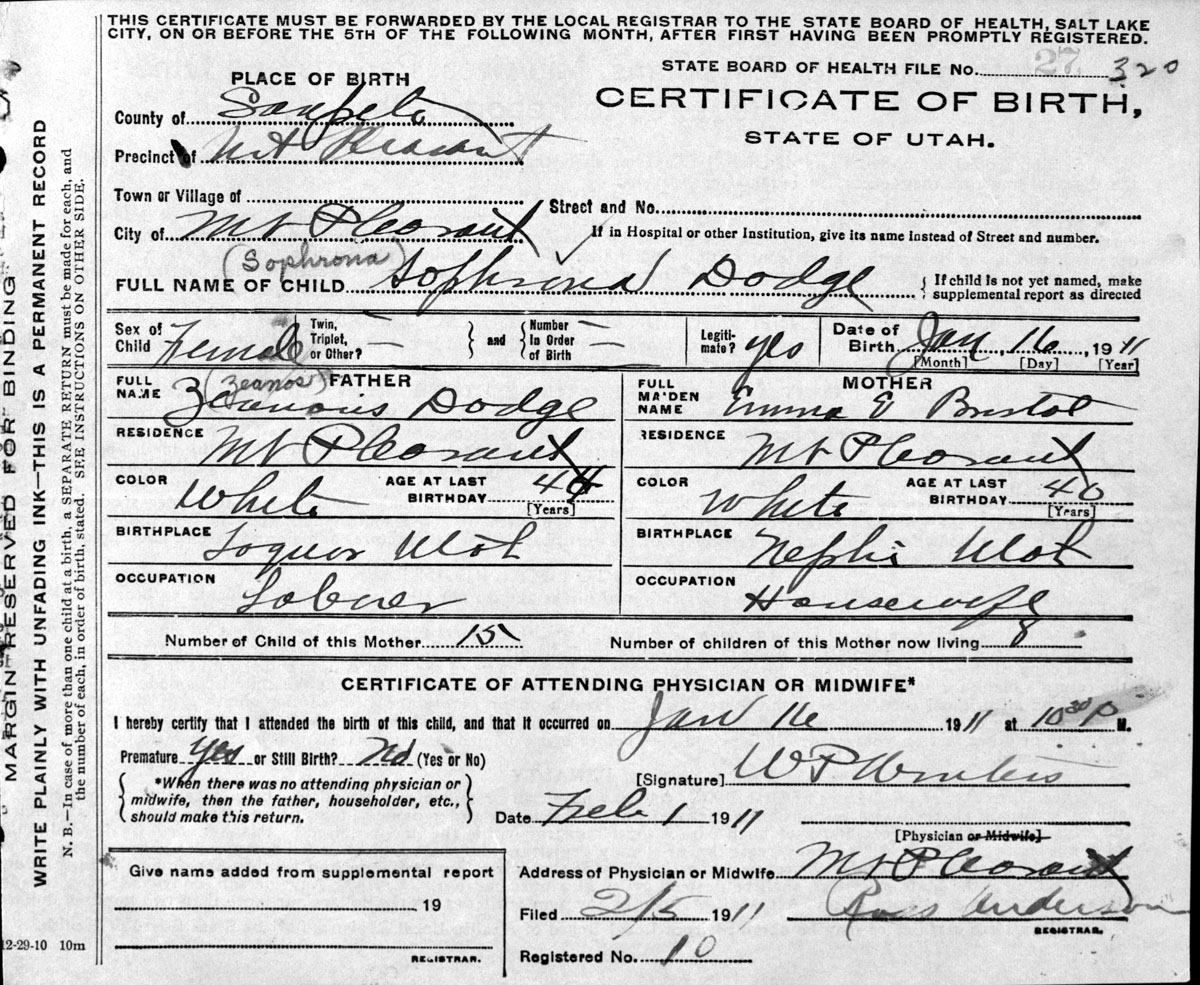 THIS CERTIFICATE MUST BE FORWARDED BY THE LOCAL REGISTRAR TO THE STATE BOARD OF HEALTH, SALT LAKE
CITY, ON OR BEFORE THE 5TH OF THE FOLLOWING MONTH, AFTER FIRST HAVING BEEN PROMPTLY REGISTERED.
MARGIN RESERVED FOR BINDING
WRITE PLAINLY WITH UNFADING INK—THIS IS A PERMANENT RECORD
N. B.—In case of more than one child at a birth, a SEPARATE RETURN must be made for each, and
the number of each, in order of birth, stated. SEE INSTRUCTIONS ON OTHER SIDE.
27
STATE BOARD OF HEALTH FILE No. 320
PLACE OF BIRTH
CERTIFICATE OF BIRTH,
STATE OF UTAH.
County of Sanpete
Precinct of Mt Pleasant
Town or Village of
Street and No.
City of Mt Pleasant
If in Hospital or other Institution, give its name instead of Street and number.
(Sophrona)
FULL NAME OF CHILD Sophrina Dodge
{ If child is not yet named, make
supplemental report as directed
Sex of Child Female
Twin, Triplet, or Other? —
and
Number In Order of Birth —
Legiti-mate? yes
Date of Birth Jan, 16, 1911
[Month] [Day] [Year]
FATHER
(Zeanos)
FULL NAME Dodge
RESIDENCE Mt Pleasant
COLOR White
AGE AT LAST BIRTHDAY 44
[Years]
BIRTHPLACE Utah
OCCUPATION Laborer
MOTHER
FULL MAIDEN NAME Emma E Bristol
RESIDENCE Mt Pleasant
COLOR White
AGE AT LAST BIRTHDAY 40
[Years]
BIRTHPLACE Nephi Utah
OCCUPATION Housewife
Number of Child of this Mother 15
Number of children of this Mother now living 8
CERTIFICATE OF ATTENDING PHYSICIAN OR MIDWIFE*
I hereby certify that I attended the birth of this child, and that it occurred on Jan 16 1911 at 10 30 P M.
Premature yes or Still Birth? No (Yes or No)
{ *When there was no attending physician or
midwife, then the father, householder, etc.,
should make this return. }
[Signature] W P Winters
Date Feb 1 1911
[Physician or Midwife]
Give name added from supplemental report
19
REGISTRAR.
Address of Physician or Midwife Mt Pleasant
Filed 2/5 1911 Anderson
REGISTRAR.
Registered No. 10
12-29-10 10m